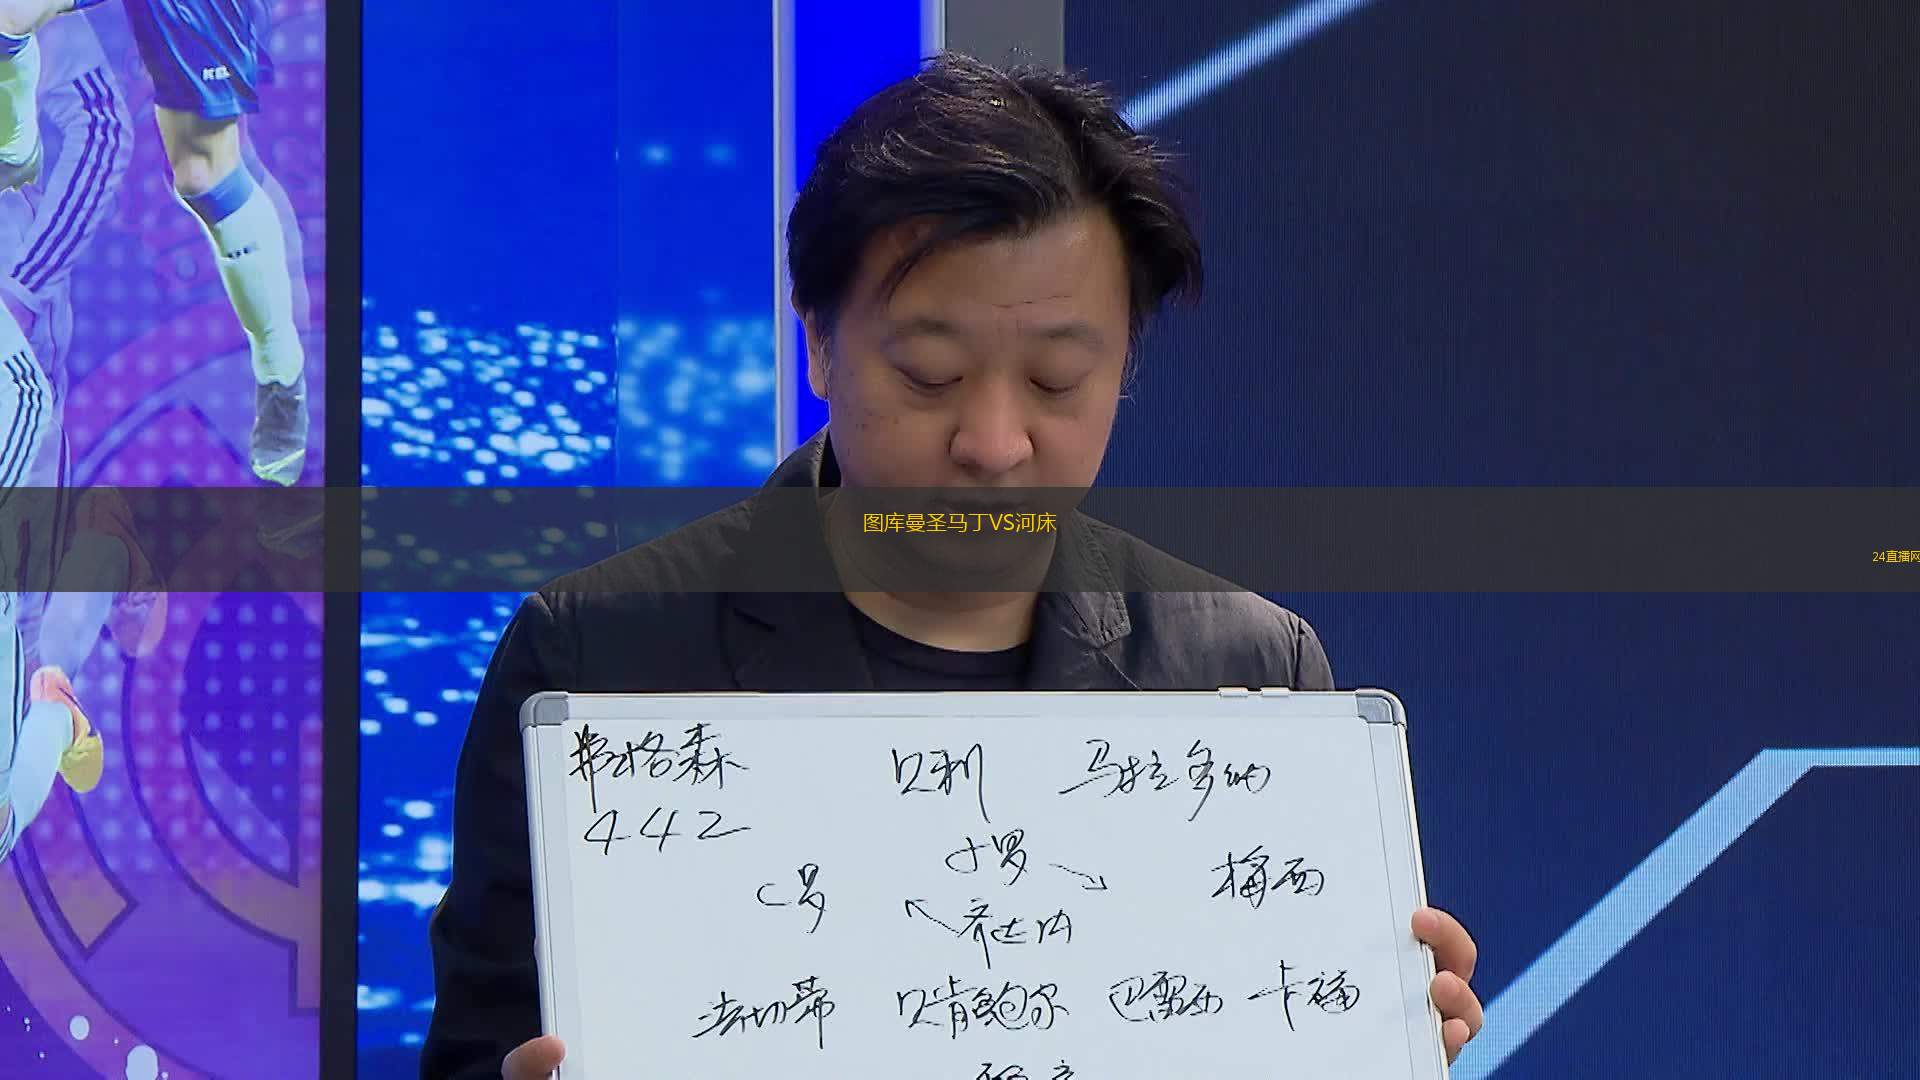 图库曼圣马丁VS河床
24直播网
弗格森 贝利 马拉多纳
442
小罗
C罗 梅西
齐达内
法切蒂 贝肯鲍尔 巴雷西 卡福